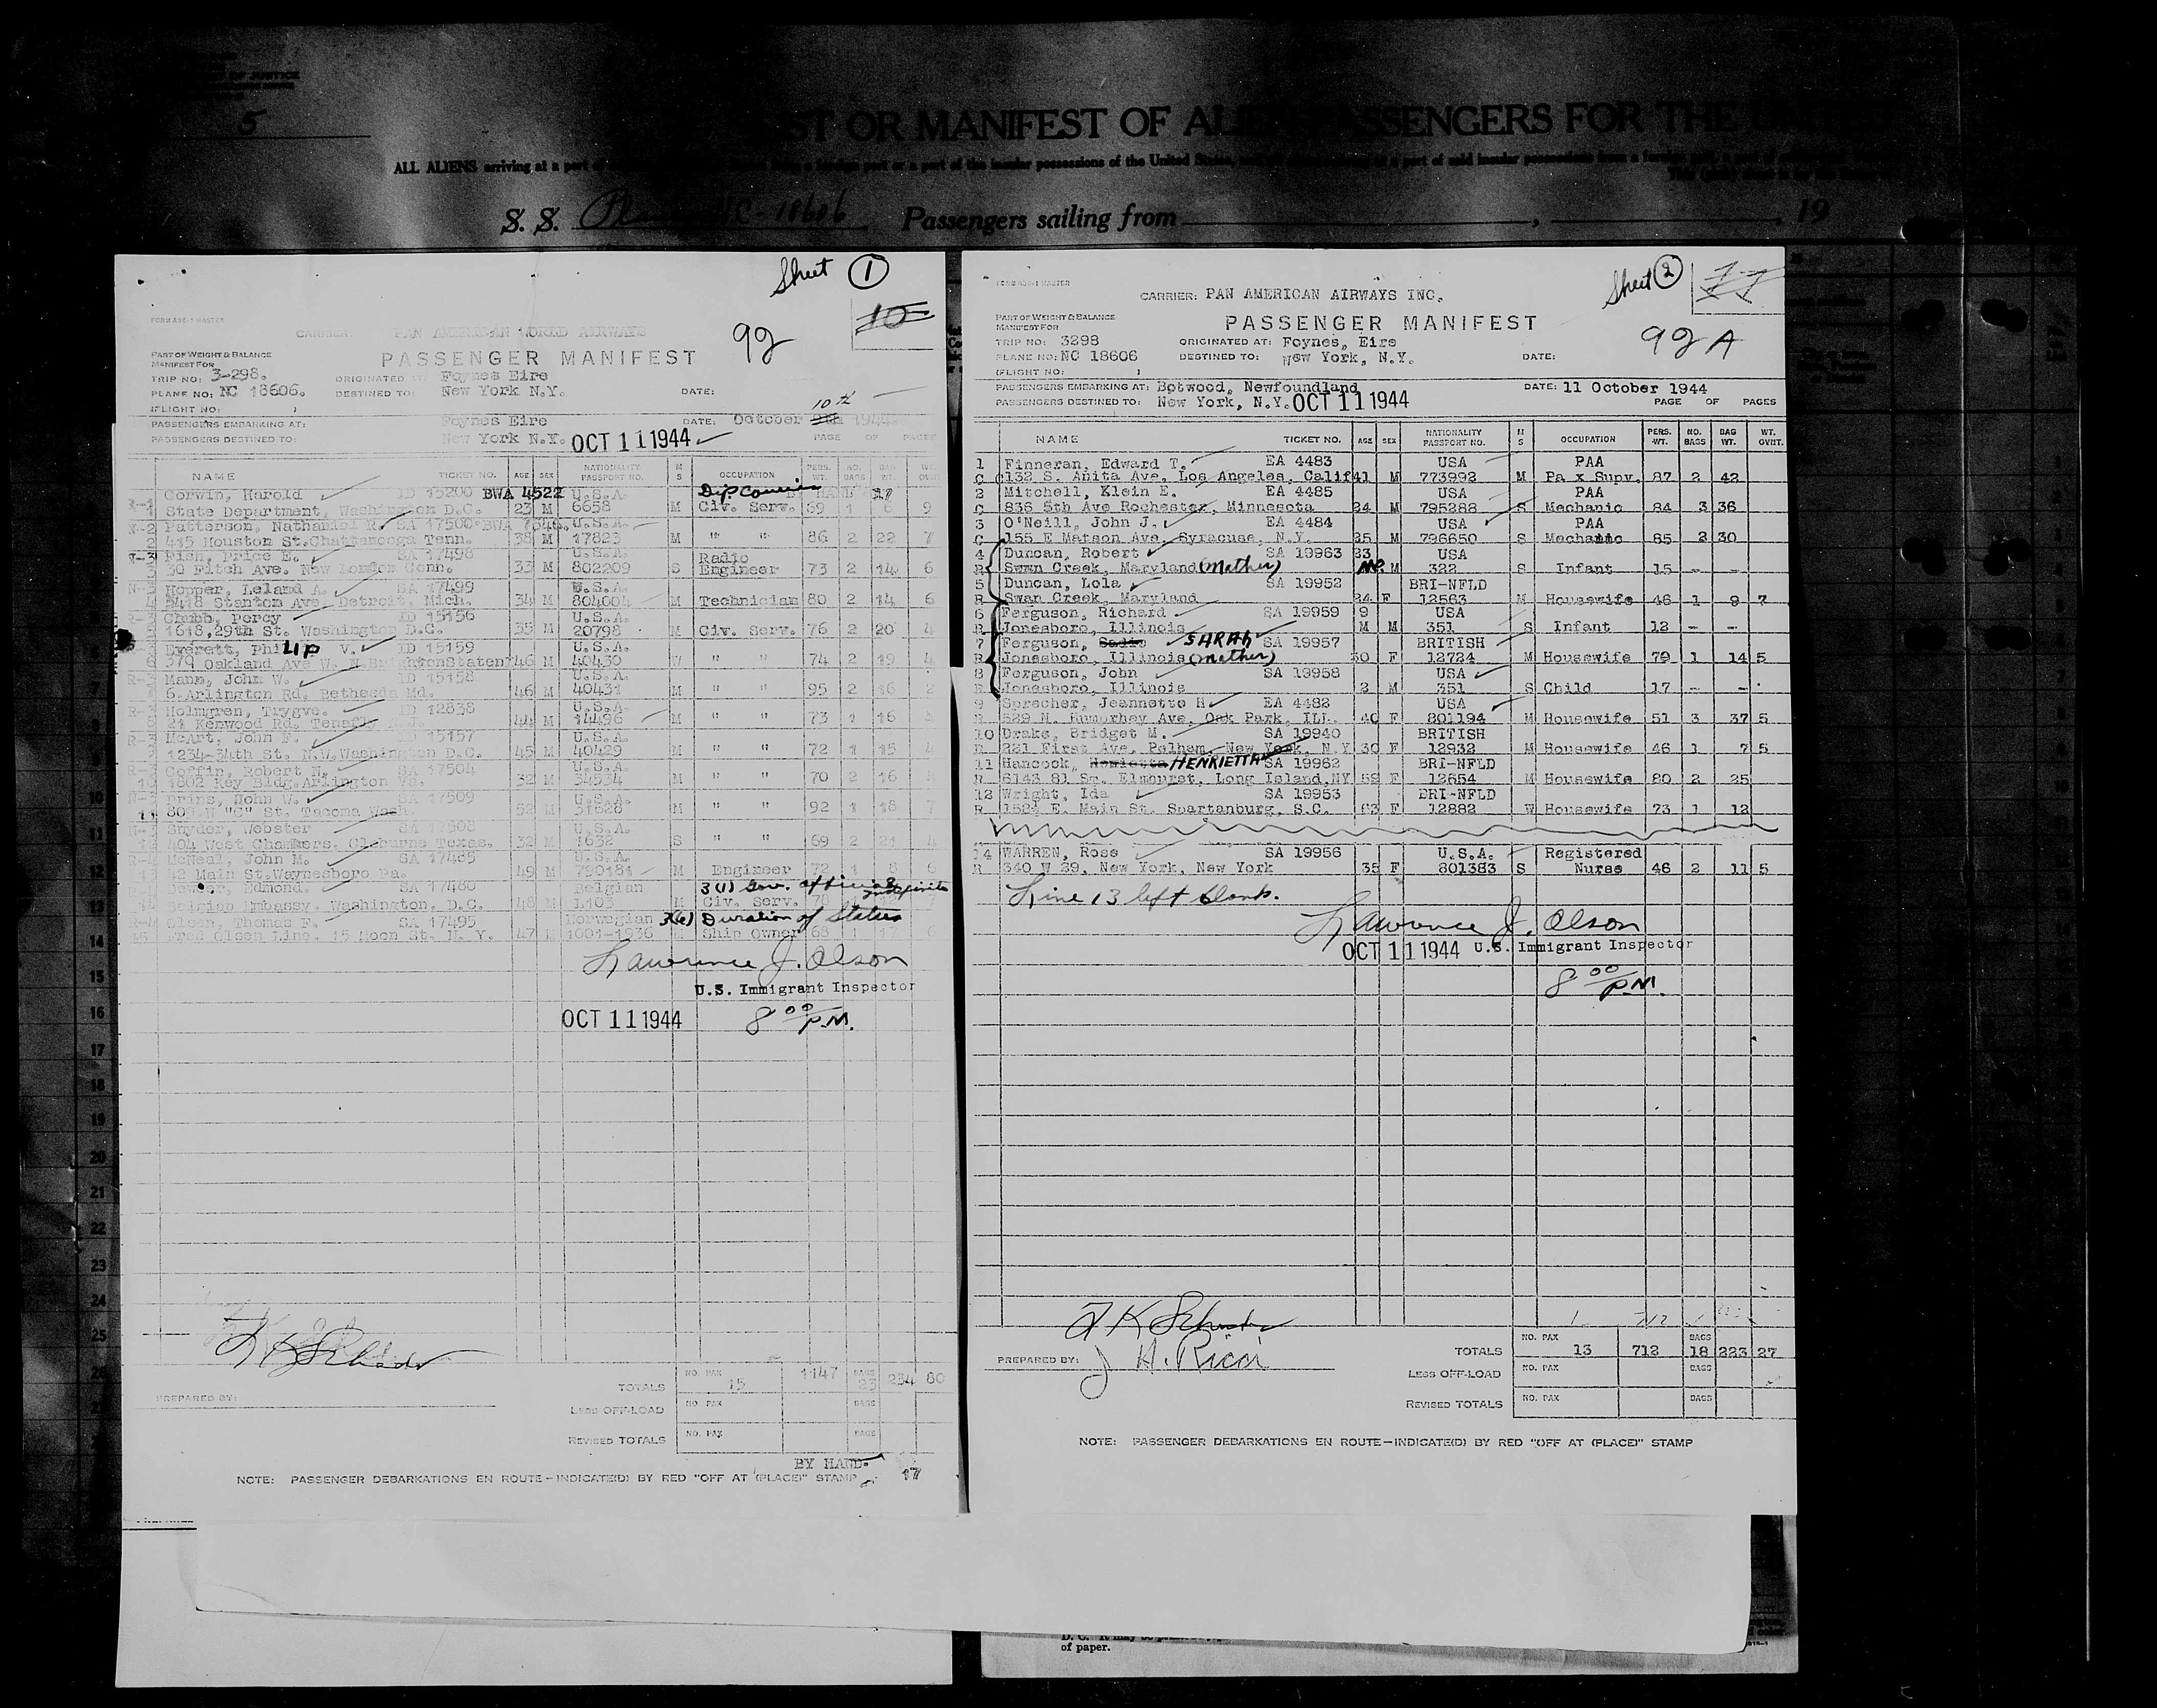 OF JUSTICE
5
LIST OR MANIFEST OF ALIEN PASSENGERS FOR THE UNITED
ALL ALIENS arriving at a port of
port or a port of the insular possessions of the United States,
a port of said insular possessions from a foreign port, a port of
S. S. Plane NC-18606 Passengers sailing from , 19
Sheet 1
10
92
FORM ASE-1 MASTER
CARRIER: PAN AMERICAN WORLD AIRWAYS
PART OF WEIGHT & BALANCE
MANIFEST FOR
PASSENGER MANIFEST
TRIP NO: 3-298. ORIGINATED AT: Foynes Eire
PLANE NO: NC 18606. DESTINED TO: New York N.Y. DATE:
(FLIGHT NO: )
10th
PASSENGERS EMBARKING AT: Foynes Eire DATE: October 9th 1944
PASSENGERS DESTINED TO: New York N.Y. OCT 11 1944 PAGE OF PAGES
NAME TICKET NO. AGE SEX NATIONALITY PASSPORT NO. M S OCCUPATION PERS. WT. NO. BAGS BAG WT. WT. OVNT.
Corwin, Harold ID 15200 BWA 4522 U.S.A. Dip. Courier BY HAND 17
State Department, Washington D.C. 23 M 6658 M Civ. Serv. 69 1 6 9
Patterson, Nathaniel R. SA 17500 BWA U.S.A.
415 Houston St. Chattanooga Tenn. 38 M 17823 M " " 86 2 22 7
Rish, Price E. SA 17498 U.S.A. Radio
30 Fitch Ave. New London Conn. 33 M 802209 S Engineer 73 2 14 6
Hopper, Leland A. SA 17499 U.S.A.
5418 Stanton Ave. Detroit, Mich. 34 M 804004 M Technician 80 2 14 6
Chubb, Percy ID 15156 U.S.A.
1618, 29th St. Washington D.C. 35 M 20798 M Civ. Serv. 76 2 20 4
Everett, PhiLIP V. ID 15159 U.S.A.
379 Oakland Ave W. N.BrightonStaten 46 M 40430 W " " 74 2 19 4
Mann, John W. ID 15158 U.S.A.
6.Arlington Rd. Bethesda Md. 46 M 40431 M " " 95 2 16 2
Holmgren, Trygve. ID 12838 U.S.A.
21 Kenwood Rd. Tenafly N.J. 44 M 14496 M " " 73 1 16
McArt, John F. ID 15157 U.S.A.
1234-34th St. N.W.Washington D.C. 45 M 40429 M " " 72 1 15 4
Coffin, Robert N. SA 17504 U.S.A.
1802 Key Bldg.Arlington Va. 32 M 34534 M " " 70 2 16 4
Prins, John W. SA 17509 U.S.A.
809.N "C" St. Tacoma Wash. 52 M 31628 M " " 92 1 18 7
Snyder, Webster SA 17508 U.S.A.
404 West Chambers. Cleburne Texas. 32 M 1632 S " " 69 2 21 4
McNeal, John M. SA 17485 U.S.A.
42 Main St.Waynesboro Pa. 49 M 790181 M Engineer 72 1 8 6
Edmond. SA 17480 Belgian 3(1) Gov. official indefinite
Belgian Embassy. Washington, D.C. 48 M 1.103 M Civ. Serv. 78 7
Olsen, Thomas F. SA 17495 Norwegian 3(6) Duration of Status
Fred Olsen Line. 15 Moon St. N. Y. 47 M 1001-1936 M Ship Owner 68 1 17 6
Lawrence J. Olson
U.S. Immigrant Inspector
OCT 11 1944 8 00 P.M.
PREPARED BY:
TOTALS NO. PAX 15 1147 BAGS 23 234 80
LESS OFF-LOAD NO. PAX BAGS
REVISED TOTALS NO. PAX BAGS
BY HAND- 17
NOTE: PASSENGER DEBARKATIONS EN ROUTE—INDICATE(D) BY RED "OFF AT (PLACE)" STAMP
Sheet 2
11
92 A
FORM ASE-1 MASTER
CARRIER: PAN AMERICAN AIRWAYS INC.
PART OF WEIGHT & BALANCE
MANIFEST FOR
PASSENGER MANIFEST
TRIP NO: 3298 ORIGINATED AT: Foynes, Eire
PLANE NO: NC 18606 DESTINED TO: New York, N.Y. DATE:
(FLIGHT NO: )
PASSENGERS EMBARKING AT: Botwood, Newfoundland DATE: 11 October 1944
PASSENGERS DESTINED TO: New York, N.Y. OCT 11 1944 PAGE OF PAGES
NAME TICKET NO. AGE SEX NATIONALITY PASSPORT NO. M S OCCUPATION PERS. WT. NO. BAGS BAG WT. WT. OVNT.
1 Finneran, Edward T. EA 4483 USA PAA
C 132 S. Anita Ave. Los Angeles, Calif 41 M 773992 M Pa x Supv. 87 2 42
2 Mitchell, Klein E. EA 4485 USA PAA
C 836 5th Ave Rochester, Minnesota 24 M 795288 S Mechanic 84 3 36
3 O'Neill, John J. EA 4484 USA PAA
C 155 E Matson Ave. Syracuse, N.Y. 25 M 796650 S Mechanic 85 2 30
4 Duncan, Robert SA 19963 23 USA
R Swan Creek, Maryland (Mother) Mo. M 322 S Infant 15 - -
5 Duncan, Lola SA 19952 BRI-NFLD
R Swan Creek, Maryland 24 F 12563 M Housewife 46 1 9 7
6 Ferguson, Richard SA 19959 9 USA
R Jonesboro, Illinois M M 351 S Infant 12 - -
7 Ferguson, Sadie SARAH SA 19957 BRITISH
R Jonesboro, Illinois (Mother) 30 F 12724 M Housewife 79 1 14 5
8 Ferguson, John SA 19958 USA
R Jonesboro, Illinois 2 M 351 S Child 17 - -
9 Sprecher, Jeannette H EA 4482 USA
R 529 N. Humprhey Ave, Oak Park, ILL. 40 F 801194 M Housewife 51 3 37 5
10 Drake, Bridget M. SA 19940 BRITISH
R 221 First Ave. Pelham, New York, N.Y 30 F 12932 M Housewife 46 1 7 5
11 Hancock, Henrietta HENRIETTA SA 19962 BRI-NFLD
R 6143 81 St. Elmhurst, Long Island,NY 59 F 12654 M Housewife 80 2 25
12 Wright, Ida SA 19953 BRI-NFLD
R 152½ E. Main St. Spartanburg, S.C. 63 F 12882 W Housewife 73 1 12
14 WARREN, Rose SA 19956 U.S.A. Registered
R 340 W 29, New York, New York 35 F 801383 S Nurse 46 2 11 5
Line 13 left blank.
Lawrence J. Olson
OCT 11 1944 U.S. Immigrant Inspector
8 00 P.M.
PREPARED BY: J H. Ricci
TOTALS NO. PAX 13 712 BAGS 18 223 27
LESS OFF-LOAD NO. PAX BAGS
REVISED TOTALS NO. PAX BAGS
NOTE: PASSENGER DEBARKATIONS EN ROUTE—INDICATE(D) BY RED "OFF AT (PLACE)" STAMP
of paper.